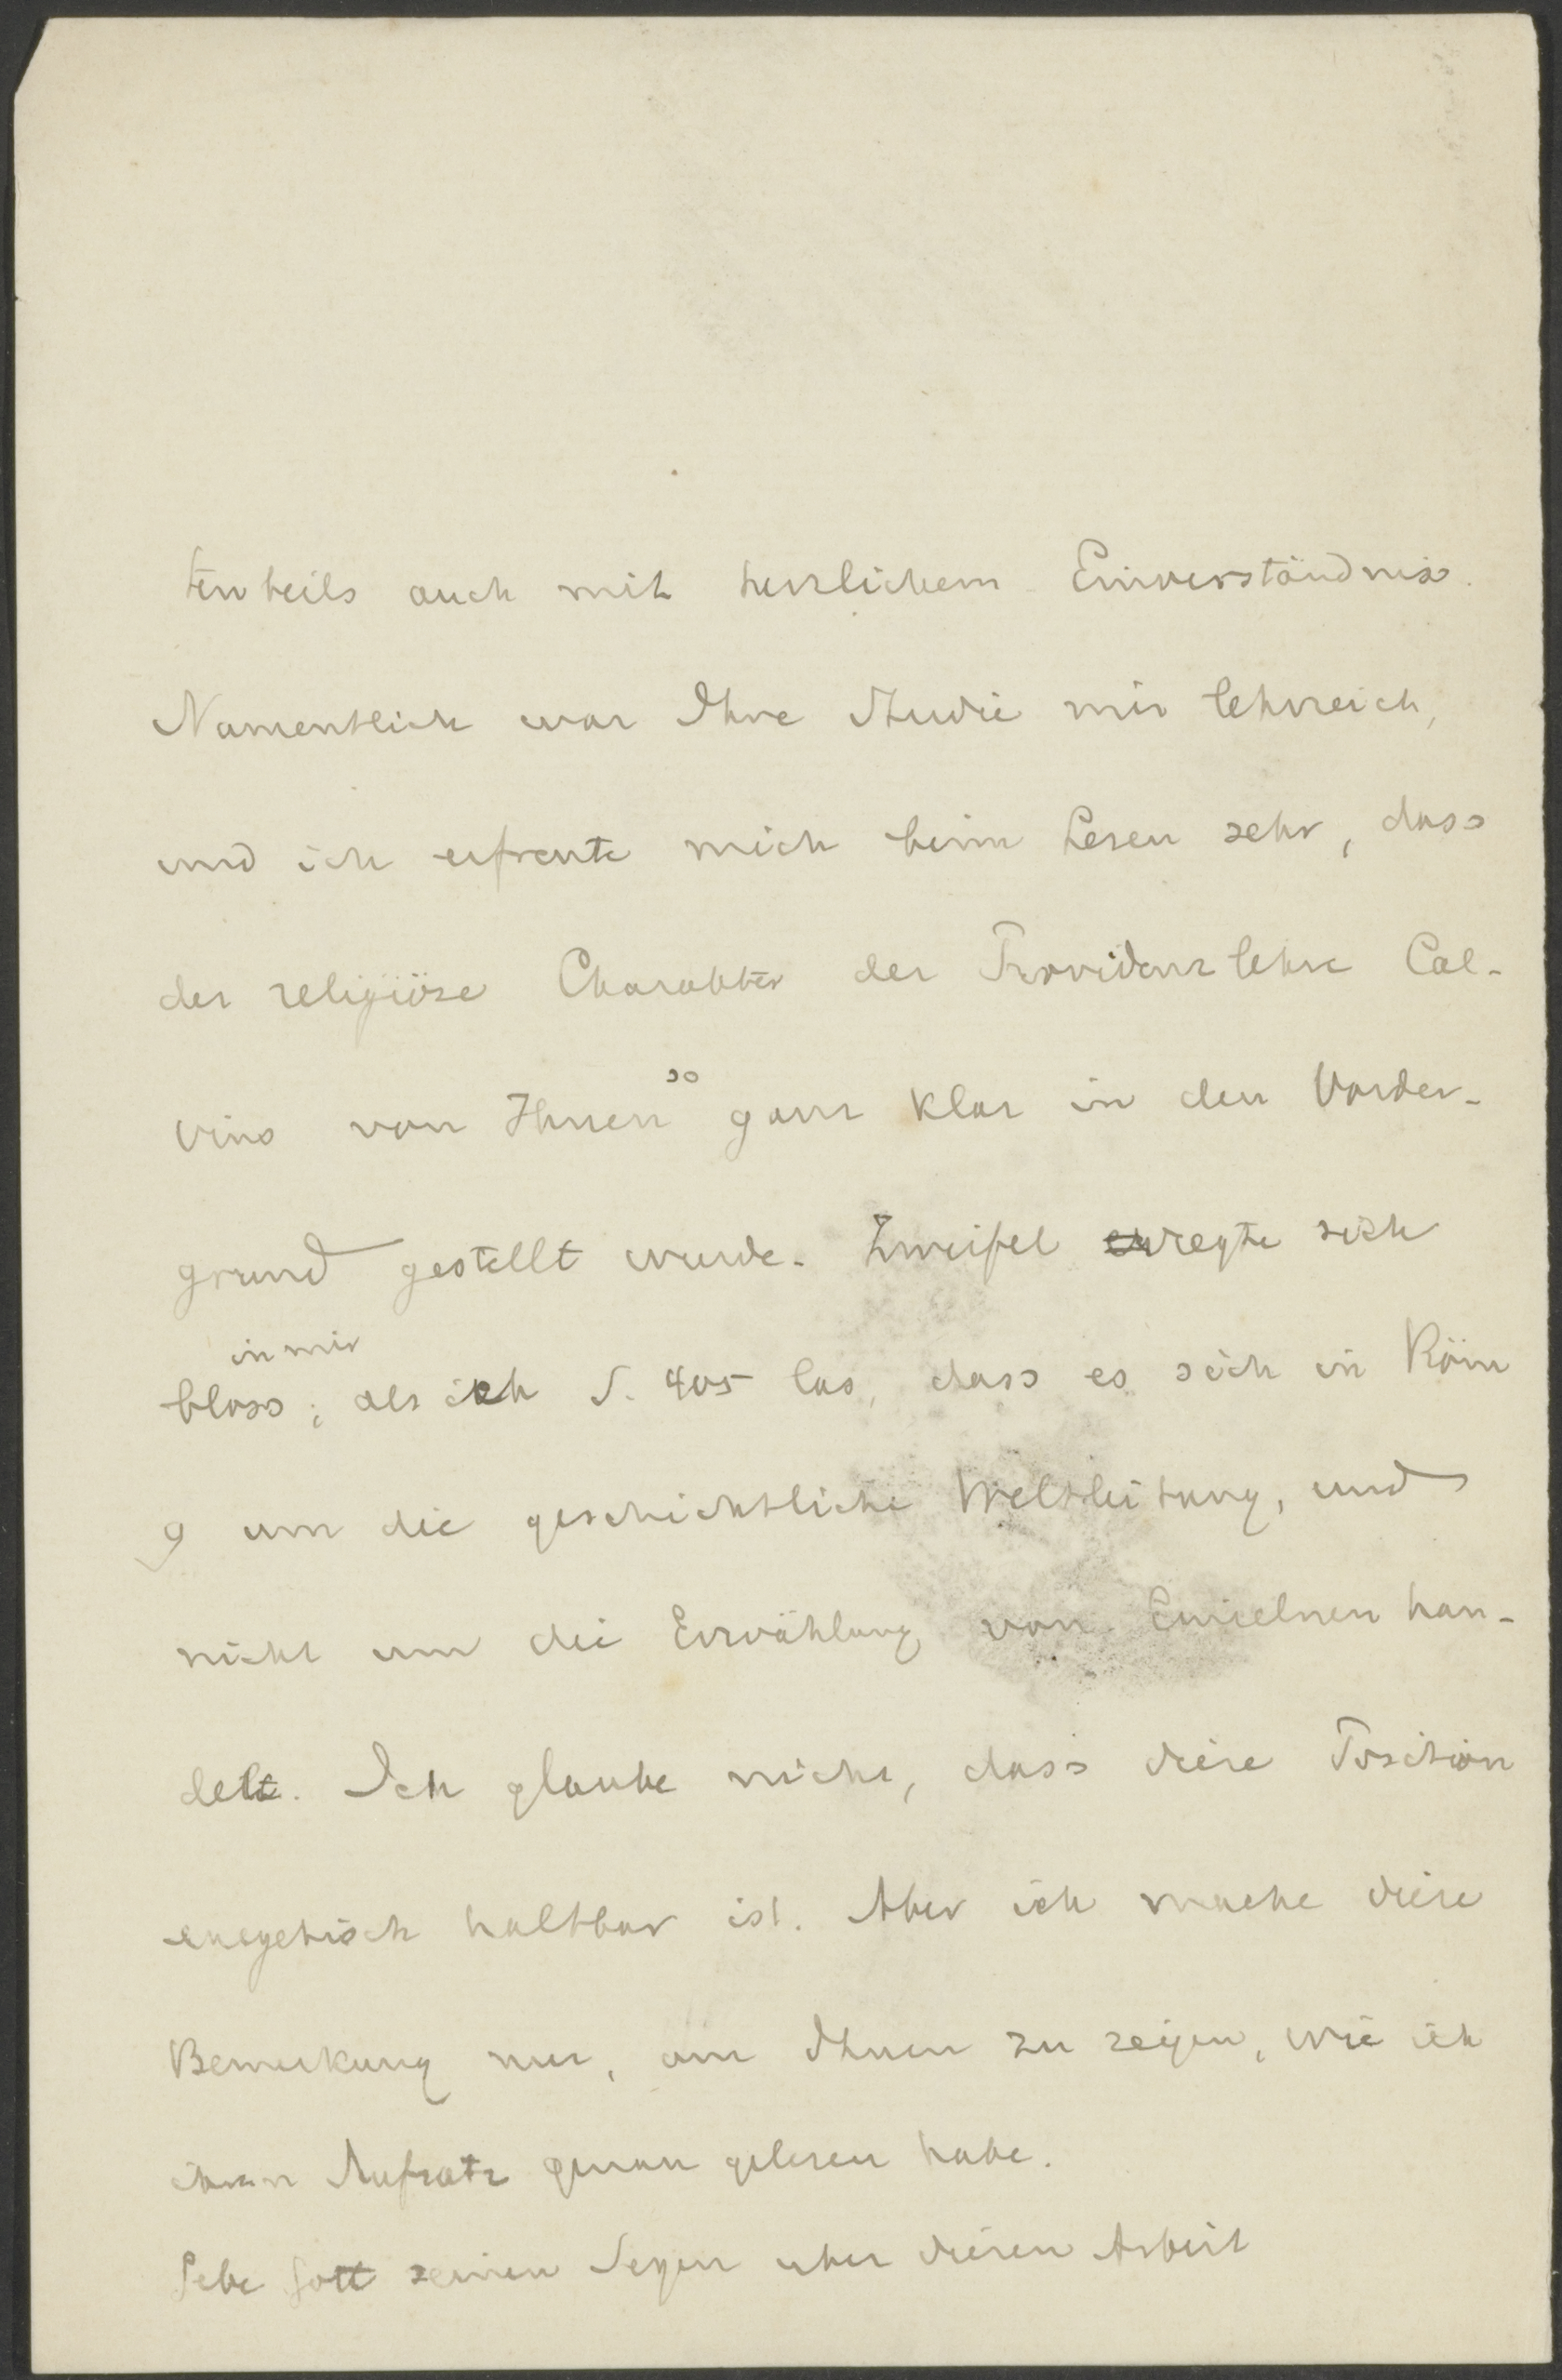 tenteils auch mit herzlichem Einverständnis.
Namentlich war Ihre Studie mir lehrreich,
und ich erfreute mich beim Lesen sehr, dass
der religiöse Charakter der Providenzlehre Cal-
vins von Ihnen so ganz klar in den Vorder-
grund gestellt wurde. Zweifel regte sich
in mir
bloss, als ich S. 405 las, dass es sich in Röm
9 um die geschichtliche Weltleitung, und
nicht um die Erwählung von Einzelnen han-
delt. Ich glaube nicht, dass diese Position
exegetisch haltbar ist. Aber ich mache diese
Bemerkung nur, um Ihnen zu zeigen, wie ich
Aufsatz genau gelesen habe.
Gebe Gott seinen Segen uber diesen Arbeit